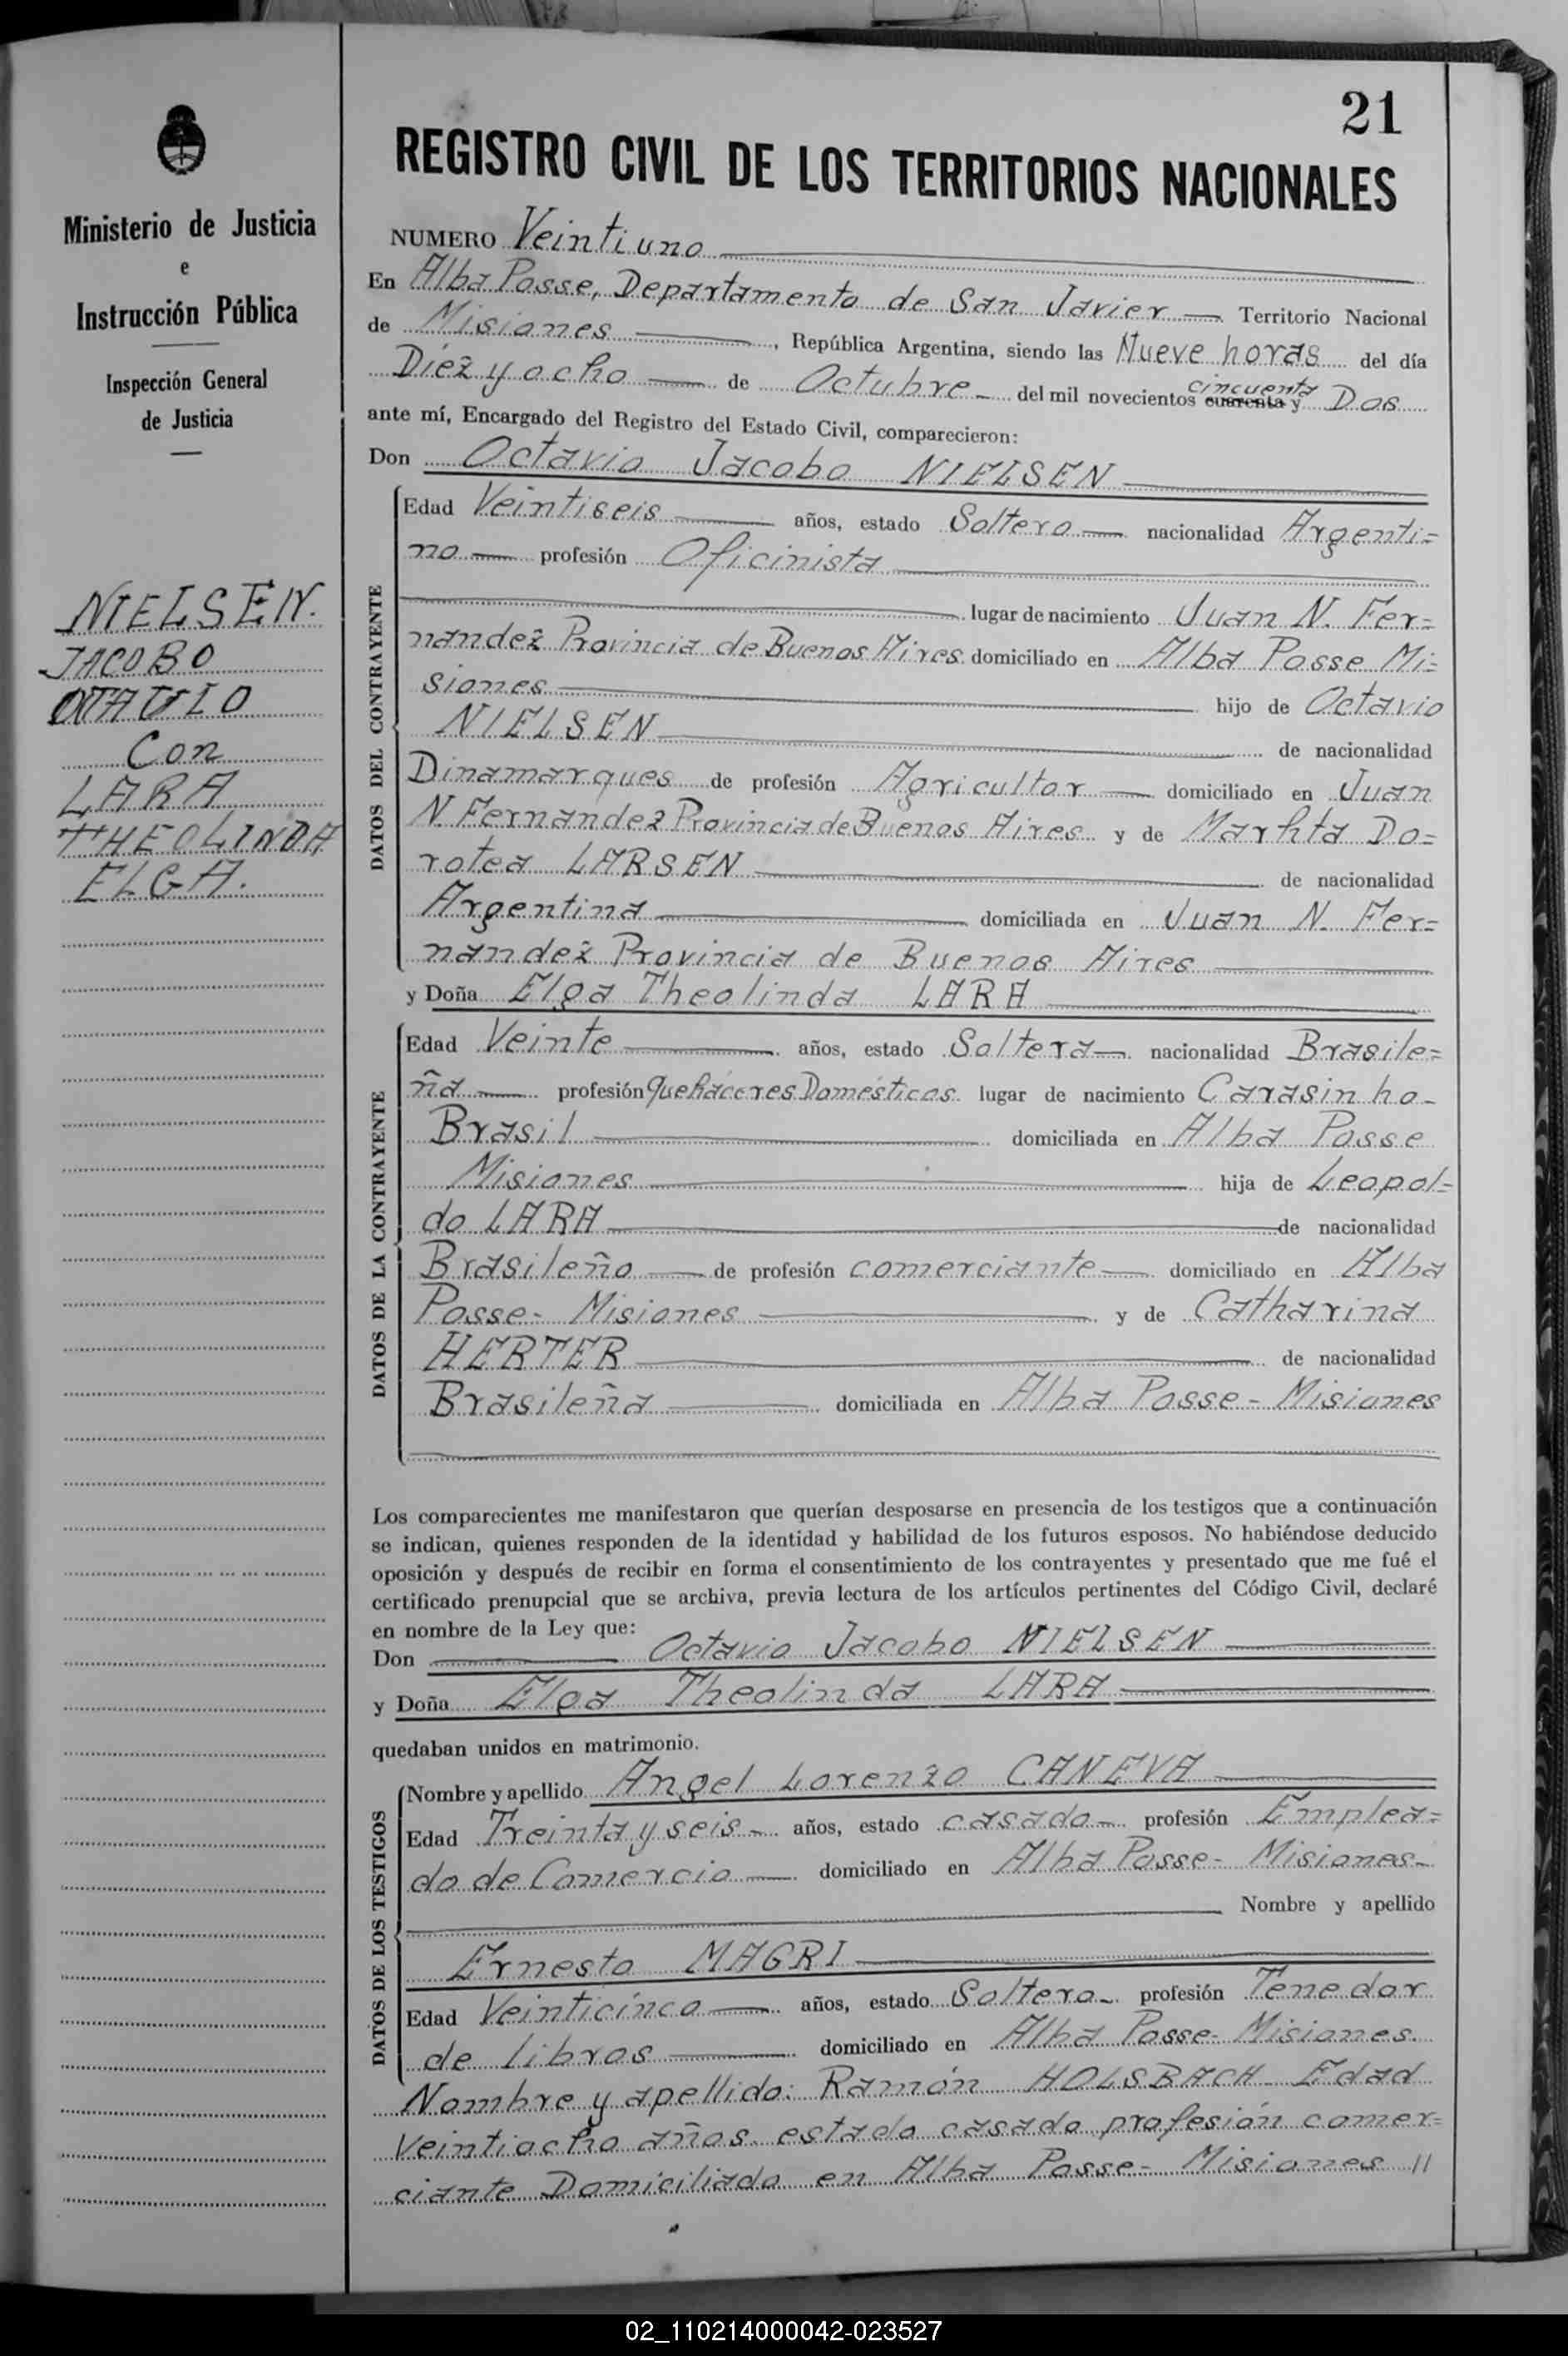 21
REGISTRO CIVIL DE LOS TERRITORIOS NACIONALES
Ministerio de Justicia
e
Instrucción Pública
Inspección General
de Justicia
NIELSEN.
JACOBO
OTAVIO
Con
LARA
THEOLINDA
ELGA.
NUMERO Veintiuno
En Alba Posse, Departamento de San Javier Territorio Nacional
de Misiones, República Argentina, siendo las Nueve horas del día
Diez y ocho de Octubre del mil novecientos cuarenta cincuenta y Dos
ante mí, Encargado del Registro del Estado Civil, comparecieron:
Don Octavio Jacobo NIELSEN
DATOS DEL CONTRAYENTE
Edad Veintiseis años, estado Soltero nacionalidad Argenti=
no profesión Oficinista
lugar de nacimiento Juan N. Fer=
nandez Provincia de Buenos Aires domiciliado en Alba Posse Mi=
siones hijo de Octavio
NIELSEN de nacionalidad
Dinamarques de profesión Agricultor domiciliado en Juan
N. Fernandez Provincia de Buenos Aires y de Marhta Do=
rotea LARSEN de nacionalidad
Argentina domiciliada en Juan N. Fer=
nandez Provincia de Buenos Aires
y Doña Elga Theolinda LARA
DATOS DE LA CONTRAYENTE
Edad Veinte años, estado Soltera nacionalidad Brasile=
ña profesión quehaceres Domésticos lugar de nacimiento Carasinho-
Brasil domiciliada en Alba Posse
Misiones hija de Leopol=
do LARA de nacionalidad
Brasileño de profesión comerciante domiciliado en Alba
Posse- Misiones y de Catharina
HERTER de nacionalidad
Brasileña domiciliada en Alba Posse- Misiones
Los comparecientes me manifestaron que querían desposarse en presencia de los testigos que a continuación
se indican, quienes responden de la identidad y habilidad de los futuros esposos. No habiéndose deducido
oposición y después de recibir en forma el consentimiento de los contrayentes y presentado que me fué el
certificado prenupcial que se archiva, previa lectura de los artículos pertinentes del Código Civil, declaré
en nombre de la Ley que:
Don Octavio Jacobo NIELSEN
y Doña Elga Theolinda LARA
quedaban unidos en matrimonio.
DATOS DE LOS TESTIGOS
Nombre y apellido Angel Lorenzo CANEVA
Edad Treinta y seis años, estado casado profesión Emplea=
do de Comercio domiciliado en Alba Posse- Misiones-
Nombre y apellido
Ernesto MAGRI
Edad Veinticinco años, estado Soltero profesión Tenedor
de libros domiciliado en Alba Posse- Misiones.
Nombre y apellido: Ramón HOLSBACH- Edad
Veintiocho años estado casado profesión comer=
ciante Domiciliado en Alba Posse- Misiones //
02_110214000042-023527